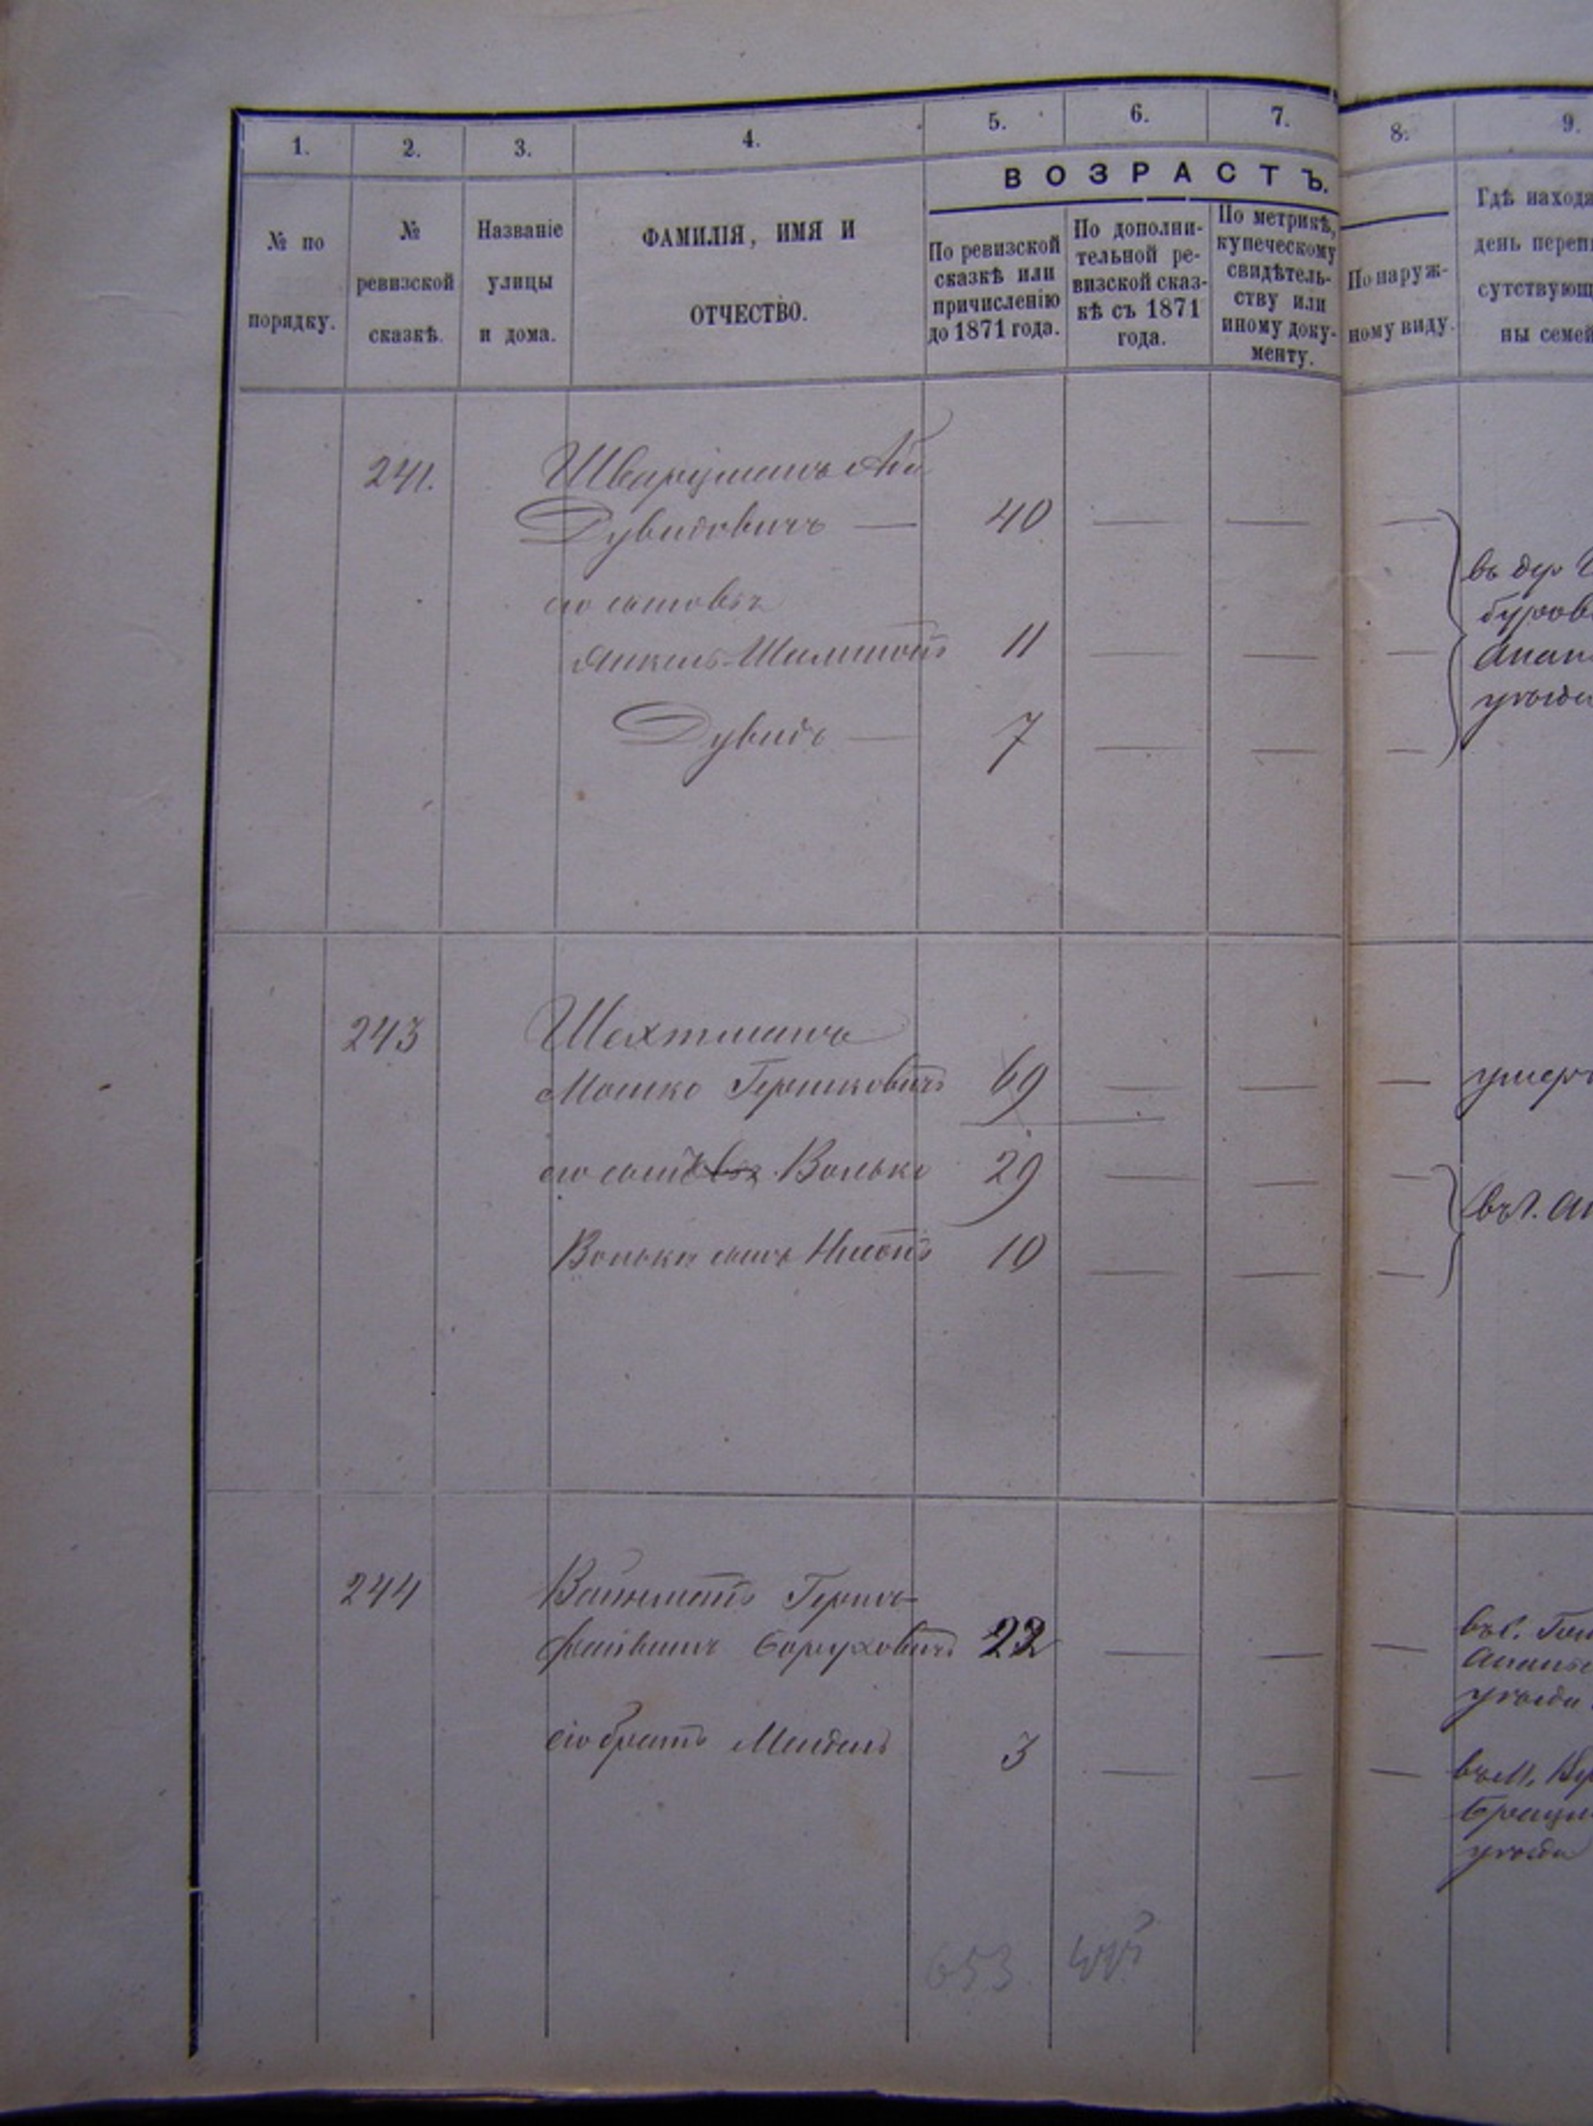 1. 2. 3. 4. 5. 6. 7. 8. 9.
ВОЗРАСТЪ.
№ по
порядку.
№
ревизской
сказкѣ.
Названіе
улицы
и дома.
ФАМИЛІЯ, ИМЯ И
ОТЧЕСТВО.
По ревизской
сказкѣ или
причисленію
до 1871 года.
По дополни-
тельной ре-
визской сказ-
кѣ съ 1871
года.
По метрикѣ,
купеческому
свидѣтель-
ству или
иному доку-
менту.
По наруж-
ному виду.
Гдѣ находя
день переп
сутствующ
ны семей
241. Шварцманъ
Дувидовичъ — 40 — — —
его сыновья
Янкель 11 — — —
Дувидъ — 7 — — —
въ дер
буров
Анан
уѣзда
243 Шехтманъ
Мошко Гершковичъ 69 — — — умеръ
его сынъ Волько 29 — — —
Волька сынъ 10 — — —
въ г. Ан
244 Вайнштейнъ Гершъ-
Боруховичъ 22 — — —
его братъ Мендель 3 — — —
уѣзда
уѣзда
653